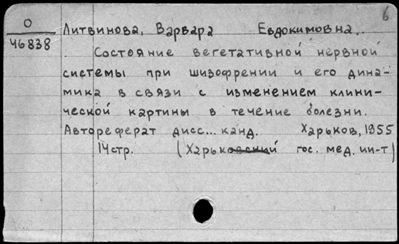 6
О
46838
Литвинова, Варвара Евдокимовна.
Состояние вегетативной нервной
системы при шизофрении и его дина-
мика в связи с изменением клини-
ческой картины в течение болезни.
Автореферат дисс... канд. Харьков, 1955
14стр. (Харьковский гос. мед. ин-т)